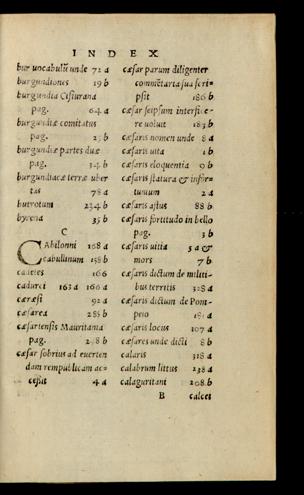 INDEX
bur uocabulũ unde 72 a
burgundiones 19 b
burgundia Cisiurana
pag. 64 a
burgundiæ comitatus
pag.
burgundiæ partes duæ
pag.
burgundiacæ terræ uber
tas 78 a
butrotum 234 b
byrena 35 b
C
CAbilonni 168 a
cabullinum 158 b
cadetes 166
cadurci 163 a 166 a
cæræsi 92 a
cæsarea 285 b
cæsariensis Mauritania
pag.
cæsar sobrius ad euerten
dam rempublicam ac=
cessit 4 a
cæsar parum diligenter
commẽtaria sua scri=
psit 186 b
cæsar seipsum interfice=
re uoluit 183 b
cæsaris nomen unde 8 a
cæsaris uita 1 b
cæsaris eloquentia 9 b
cæsaris statura & infor=
tunium 2 a
cæsaris astus 88 b
cæsaris fortitudo in bello
pag. 3 b
cæsaris uitia 5 a &
mors 7 b
cæsaris dictum de militi=
bus territis 328 a
cæsaris dictum de Pom=
peio
cæsaris locus 107 a
cæsares unde dicti 8 b
calaris 318 a
calabrum littus 238 a
calaguritani 208 b
B calcet